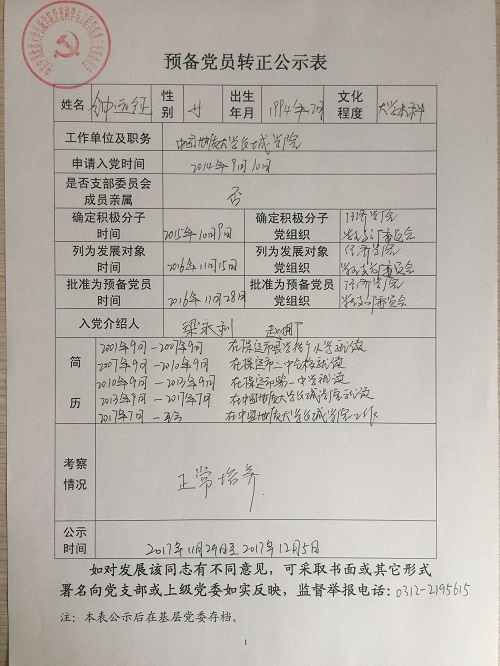 预备党员转正公示表
姓名 性别 女 出生年月 1994年 文化程度 大学本科
工作单位及职务 中国地质大学长城学院
申请入党时间 2014年9月10日
是否支部委员会成员亲属 否
确定积极分子时间 2015年10月9日 确定积极分子党组织 经济学院 委员会
列为发展对象时间 2016年11月15日 列为发展对象党组织 经济学院 委员会
批准为预备党员时间 2016年11月28日 批准为预备党员党组织 经济学院 委员会
入党介绍人 梁永利
简历
2001年9月-2007年9月 在保定市县学街小学就读
2007年9月-2010年9月 在保定市二中分校就读
2010年9月-2013年9月 在保定市第一中学就读
2013年9月-2017年7月 在中国地质大学长城学院就读
2017年7月-至今 在中国地质大学长城学院工作
考察情况 正常培养
公示时间 2017年11月29日至2017年12月5日
如对发展该同志有不同意见，可采取书面或其它形式
署名向党支部或上级党委如实反映，监督举报电话：0312-2195615
注：本表公示后在基层党委存档。
1